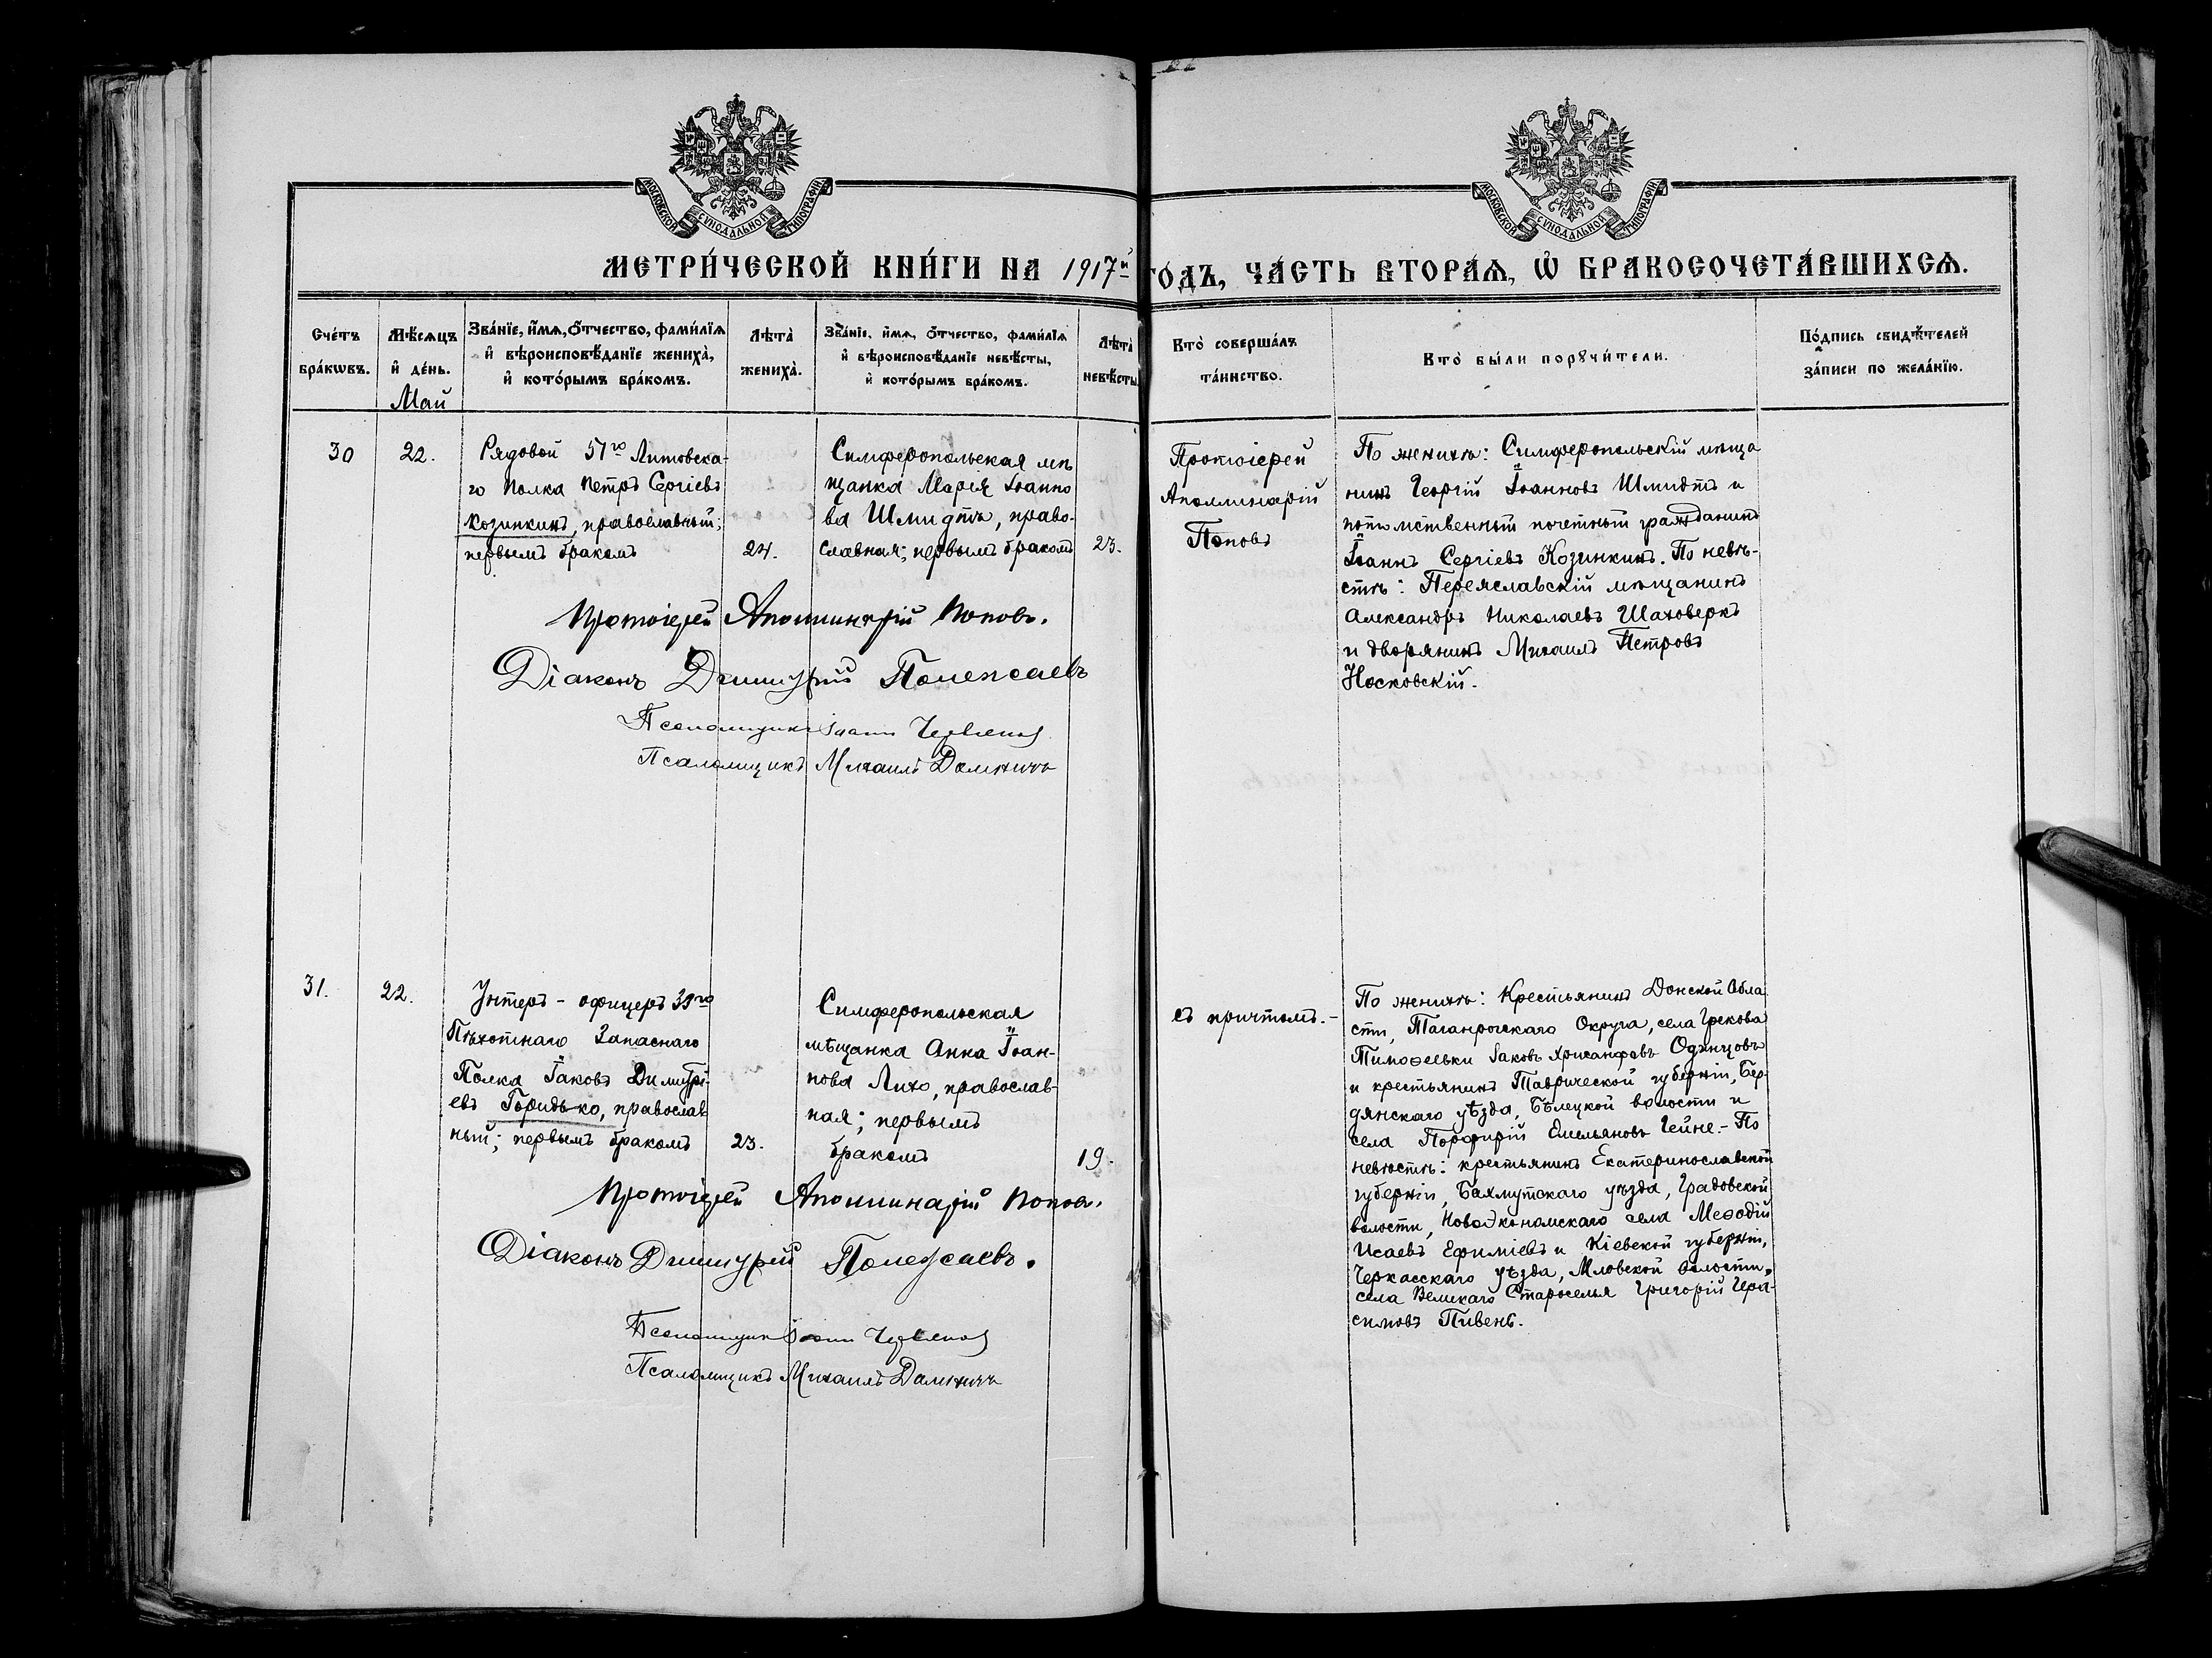 МОСКОВСКОЙ СУНОДАЛЬНОЙ ТИПОГРАФІИ
МОСКОВСКОЙ СУНОДАЛЬНОЙ ТИПОГРАФІИ
МЕТРИ́ЧЕСКОЙ КНИ́ГИ НА 1917й ГО́ДЪ, ЧА́СТЬ ВТОРА́Ѧ, Ѽ БРАКОСОЧЕТА́ВШИХСѦ.
Сче́тъ
бра́кѡвъ.
Мѣ́сѧцъ
и҆ де́нь.
Май
Зва́нїе, и҆́мѧ, ѻ҆́тчество, фами́лїѧ
и҆ вѣроисповѣ́данїе жениха̀,
и҆ кото́рымъ бра́комъ.
Лѣта̀
жениха̀.
Зва́нїе, и҆́мѧ, ѻ҆́тчество, фами́лїѧ
и҆ вѣроисповѣ́данїе невѣ́сты,
и҆ кото́рымъ бра́комъ.
Лѣта̀
невѣ́сты.
Кто̀ соверша́лъ
та́инство.
Кто̀ бы́ли порꙋчи́тели.
По́дпись свидѣ́телей
за́писи по жела́нїю.
30
22.
Рядовой 51го Литовска-
го Полка Петръ Сергіевъ
Козинкинъ, православный;
первымъ бракомъ
24.
Симферопольская мѣ
щанка Марія Іоанно
ва Шмидтъ, право-
славная; первымъ бракомъ
23.
Протоіерей
Аполлинарій
Поповъ
По женихѣ: Симферопольскій мѣща
нинъ Георгій Іоанновъ Шмидтъ и
потомственный почетный гражданинъ
Іоаннъ Сергіевъ Козинкинъ. По невѣ-
стѣ: Переяславскій мѣщанинъ
Александръ Николаевъ Шаховеркъ
и дворянинъ Михаилъ Петровъ
Носковскій.
Протоіерей Аполлинарій Поповъ.
Діаконъ Димитрій Полежаевъ
Псаломщикъ Іоаннъ
Псаломщикъ Михаилъ
31.
22.
Унтеръ-офицеръ 33го
Пѣхотнаго Запаснаго
Полка Іаковъ Димитрі-
евъ Горидько, православ
ный; первымъ бракомъ
23.
Симферопольская
мѣщанка Анна Іоан-
нова Лихо, православ-
ная; первымъ
бракомъ
19.
съ причтомъ.-
По женихѣ: Крестьянинъ Донской Обла
сти, Таганрогскаго Округа, села Грекова
Тимофеевки Іаковъ Хрисанфовъ Одинцовъ
и крестьянинъ Таврической губерніи, Бер-
дянскаго уѣзда, Бѣлецкой волости и
села Порфирій Емельяновъ Гейне.- По
невѣстѣ: крестьянинъ Екатеринославской
губерніи, Бахмутскаго уѣзда, Градовской
волости, Новоэкономскаго села Меѳодій
Исаевъ Ефиміевъ и Кіевской губерніи,
Черкасскаго уѣзда, Мловской волости,
села Великаго Староселья Григорій Гера-
симовъ Пивень.
Протоіерей Аполлинарій Поповъ.
Діаконъ Димитрій Полежаевъ.
Псаломщикъ Іоаннъ
Псаломщикъ Михаилъ